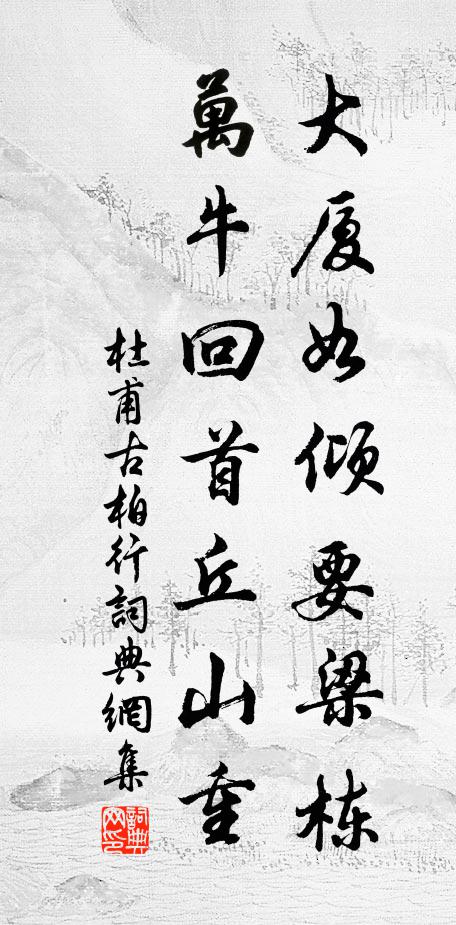 大厦如倾要梁栋
萬牛回首丘山重
杜甫古柏行詞典網集
詞典網印